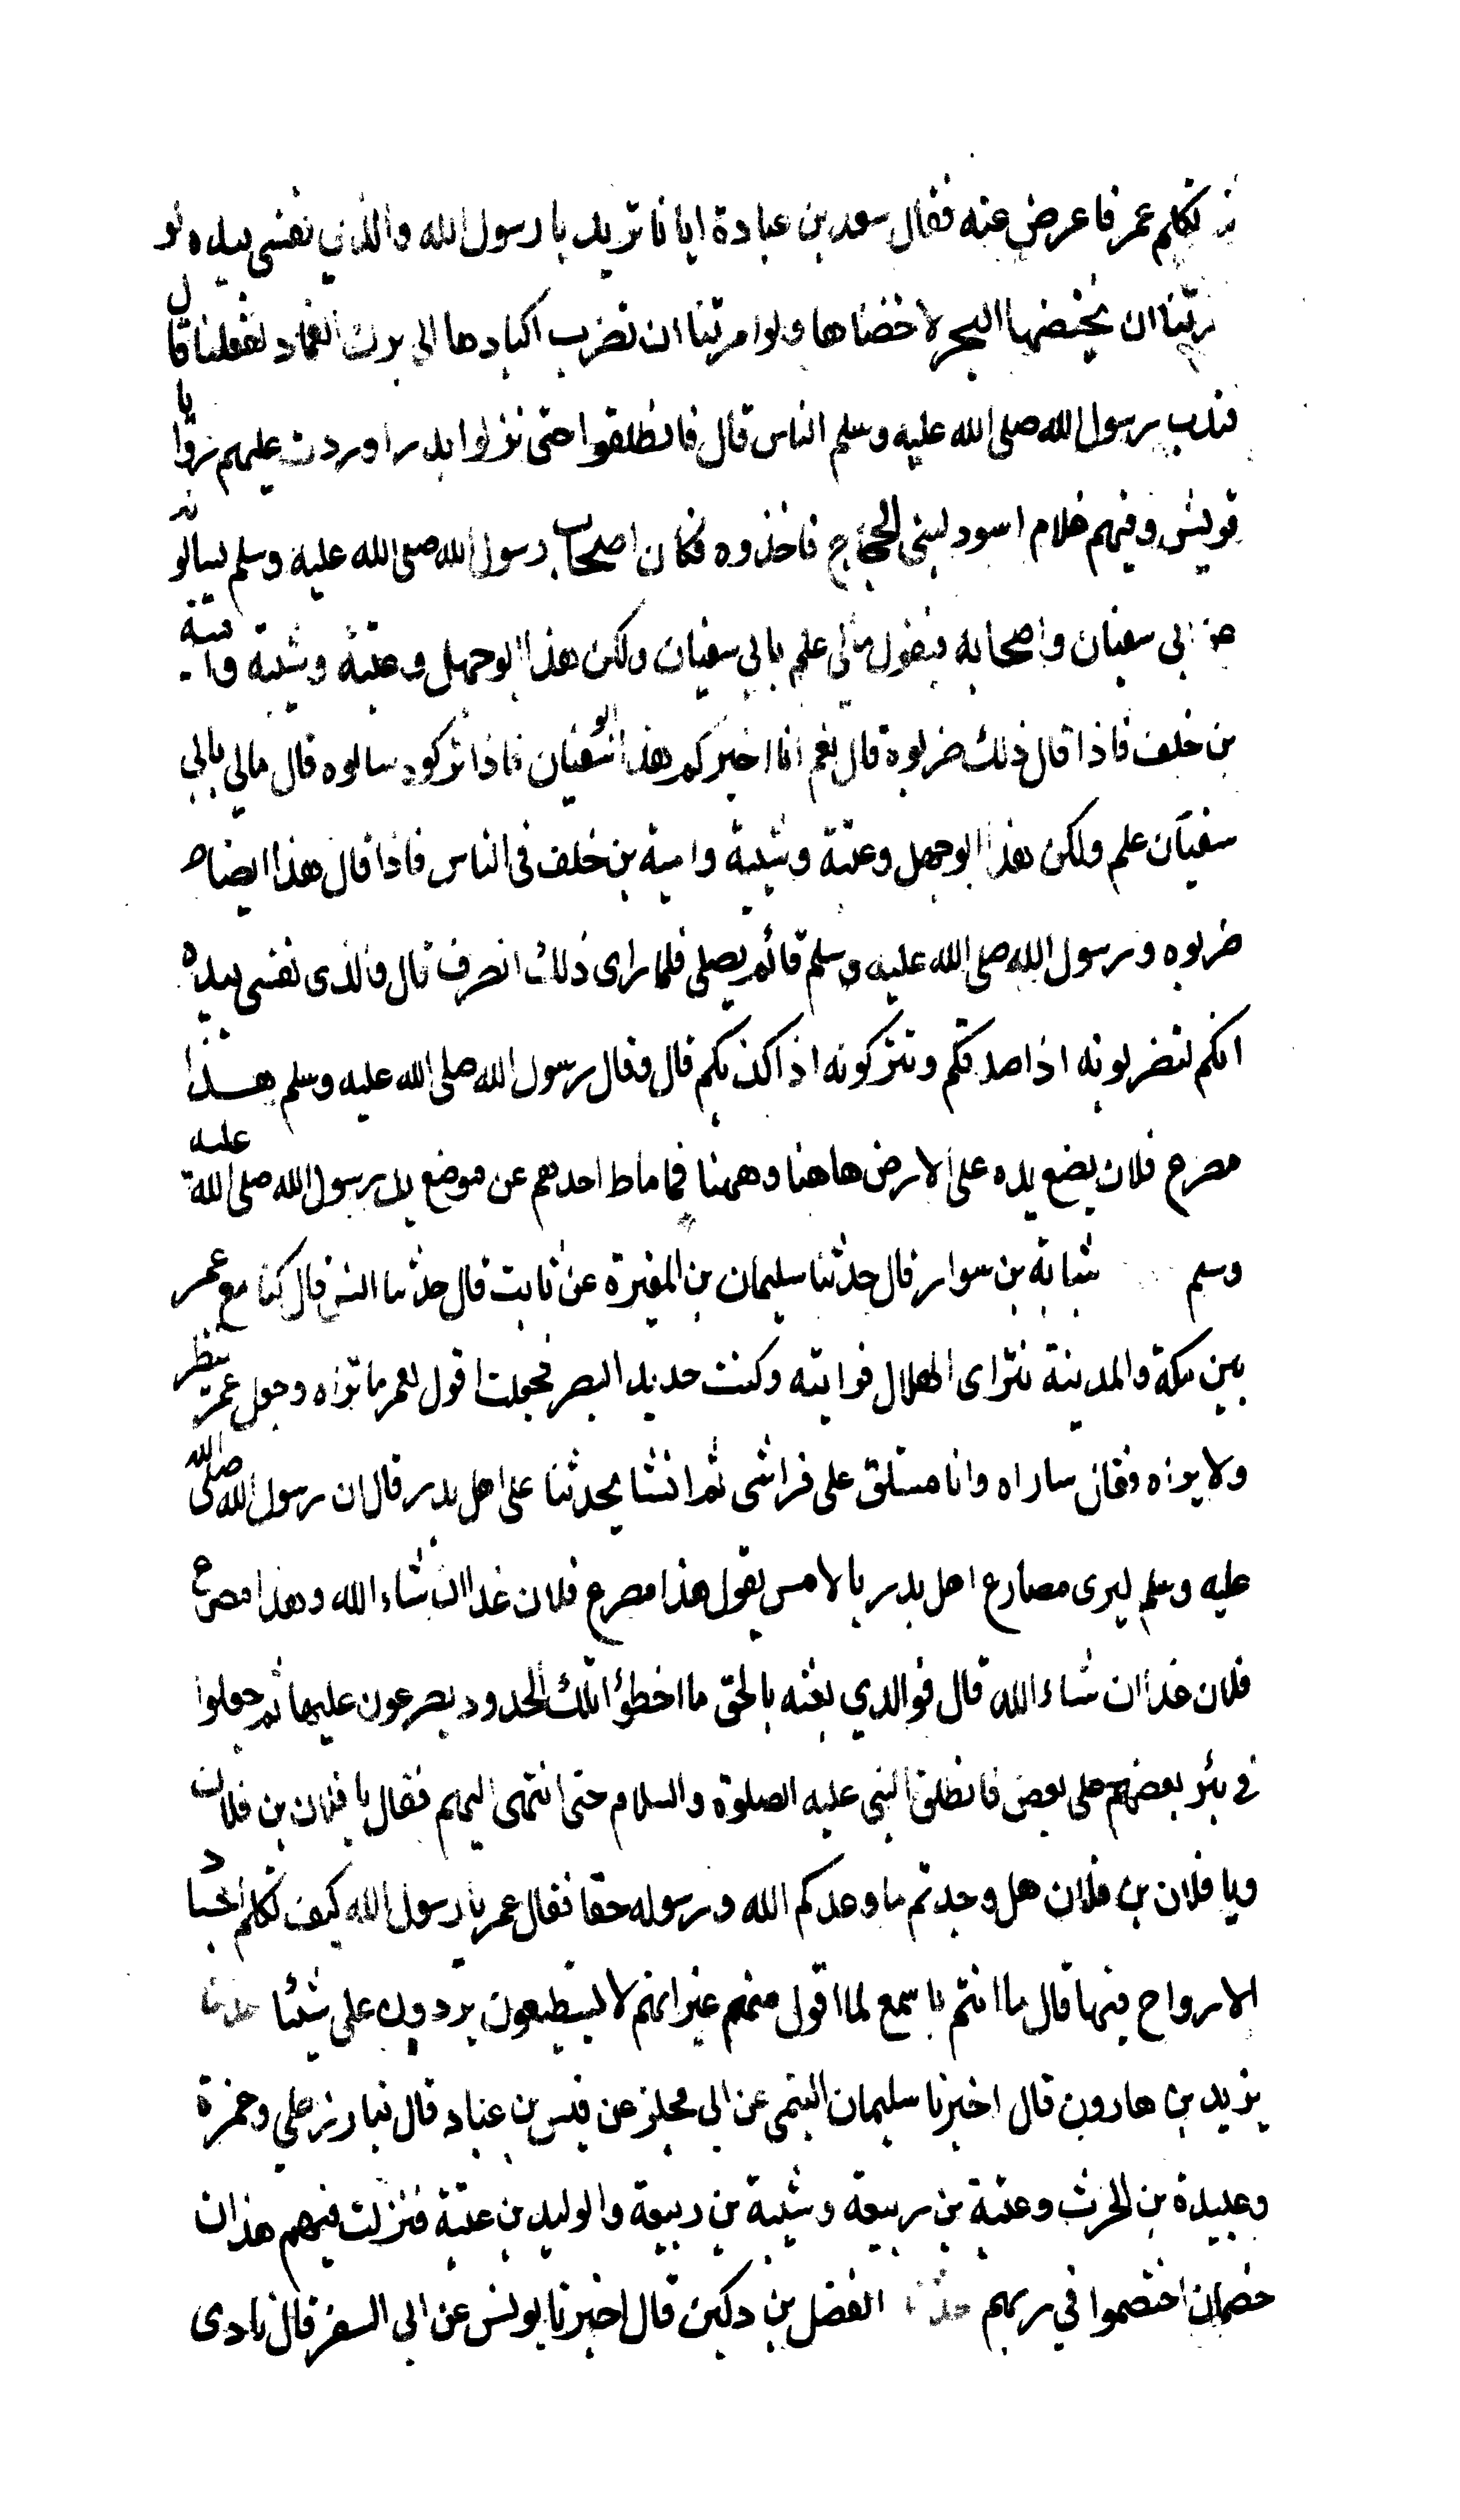 تكلم عمر فاعرض عنه فقال سعد بن عبادة ايانا تريد يا رسول الله والذي نفسي بيده لو
مرتنا ان نخيضها البحر لاخضناها ولو امرتنا ان نضرب اكبادها الى برك الغماد لفعلنا قال
فندب رسول الله صلى الله عليه وسلم الناس قال فانطلقوا حتى نزلوا بدرا وردت عليهم روايا
قريش وفيهم غلام اسود لبنى الحجاج فاخذوه فكان اصحاب رسول الله صلى الله عليه وسلم يسالونه
عن ابي سفيان واصحابه فيقول مالي علم بابي سفيان ولكن هذا ابو جهل وعتبة وشيبة وامية
بن خلف فاذا قال ذلك ضربوه قال نعم انا اخبركم هذا ابو سفيان فاذا تركوه سالوه قال مالي بابي
سفيان علم ولكن هذا ابو جهل وعتبة وشيبة وامية بن خلف في الناس فاذا قال هذا ايضا
ضربوه ورسول الله صلى الله عليه وسلم قائم يصلى فلما راى ذلك انصرف قال والذى نفسى بيده
انكم لتضربونه اذا صدقكم وتتركونه اذا كذبكم قال وقال رسول الله صلى الله عليه وسلم هذا
مصرع فلان يضع يده على الارض هاهنا وههنا فما ماط احدهم عن موضع يد رسول الله صلى الله عليه
وسلم شبابة بن سوار قال حدثنا سليمان بن المغيرة عن ثابت قال حدثنا انس قال كنا مع عمر
بين مكة والمدينة نتراى الهلال فرايته وكنت حديد البصر فجعلت اقول لعمر ما تراه وجعل عمر ينظر
ولا يراه فقال ساراه وانا مستلق على فراشى ثم انشا يحدثنا على اهل بدر قال ان رسول الله صلى الله
عليه وسلم ليرى مصارع اهل بدر بالامس يقول هذا مصرع فلان غدا ان شاء الله وهذا مصرع
فلان غدا ان شاء الله قال فوالذي بعثه بالحق ما اخطؤا تلك الحدود يصرعون عليها ثم جعلوا
في بئر بعضهم على بعض فانطلق النبي عليه الصلوة والسلام حتى انتهى اليهم فقال يا فلان بن فلان
ويا فلان بن فلان هل وجدتم ما وعدكم الله ورسوله حقا فقال عمر يا رسول الله كيف تكلم اجسادا
لا ارواح فيها قال ما انتم باسمع لما اقول منهم غير انهم لا يستطيعون يردون على شيئا حدثنا
يزيد بن هارون قال اخبرنا سليمان التيمى عن ابي مجلز عن قيس بن عباد قال تبارز علي وحمزة
وعبيدة بن الحرث وعتبة بن ربيعة وشيبة بن ربيعة والوليد بن عتبة فنزلت فيهم هذان
خصمان اختصموا في ربهم حدثنا الفضل بن دكين قال اخبرنا يونس عن ابي السفر قال نادى